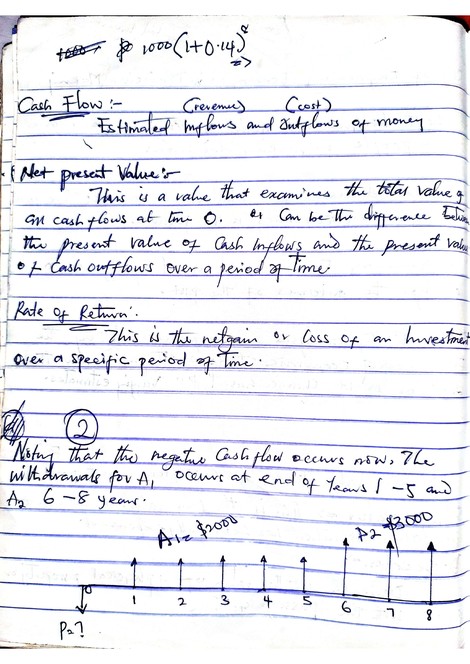 $ 1000(1+0.14)
Cash Flow :- (revenue) (cost)
Estimated Inflows and Outflows of money
Net present Value:-
This is a value that examines the total value of
all cash flows at time 0. Can be the difference
the present value of Cash Inflows and the present
of Cash outflows over a period of Time.
Rate of Return:
This is the net gain or Loss of an Investment
over a specific period of Time.
2
Noting that the negative Cashflow occurs now, The
withdrawals for A1 occurs at end of Years 1 - 5 and
A2 6 - 8 years.
A1= $2000 $3000
1 2 3 4 5 6 7 8
P=?